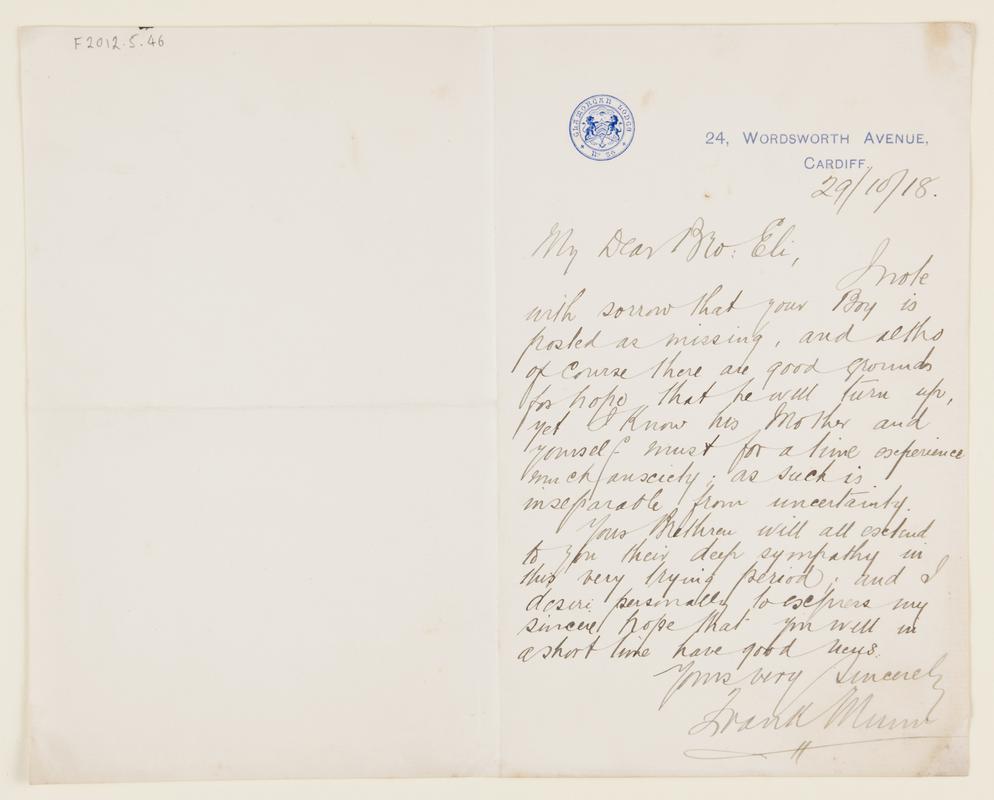 F2012.5.46
GLAMORGAN LODGE
No 36
24, WORDSWORTH AVENUE,
CARDIFF.
29/10/18.
My Dear Bro: Eli,
I note
with sorrow that your Boy is
posted as missing, and altho
of course there are good grounds
for hope that he will turn up,
yet I know his Mother and
yourself must for a time experience
much anxiety; as such is
inseparable from uncertainty.
Your Brethren will all extend
to you their deep sympathy in
this very trying period; and I
desire personally to express my
sincere hope that you will in
a short time have good news.
Yours very sincerely
Frank Munn